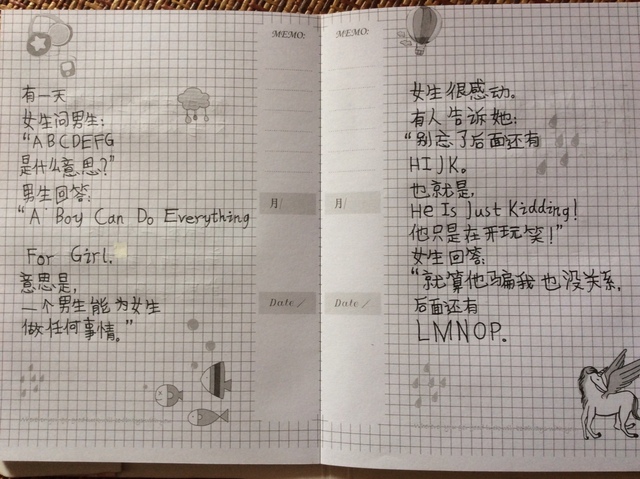 有一天
女生问男生:
“ABCDEFG
是什么意思?”
男生回答:
“A Boy Can Do Everything
For Girl.
意思是,
一个男生能为女生
做任何事情。”
MEMO:
月/
Date /
MEMO:
月/
Date /
女生很感动。
有人告诉她:
“别忘了后面还有
HIJK。
也就是,
He Is Just Kidding!
他只是在开玩笑!”
女生回答:
“就算他骗我也没关系,
后面还有
LMNOP.